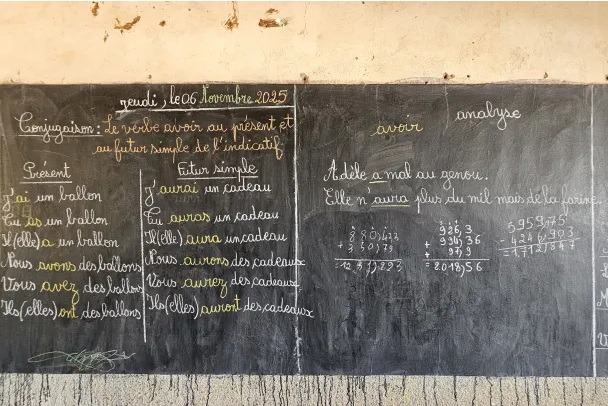 jeudi, le 06 Novembre 2025
Conjugaison: Le verbe avoir au présent et
au futur simple de l'indicatif
Présent
J'ai un ballon
Tu as un ballon
Il(elle) a un ballon
Nous avons des ballons
Vous avez des ballons
Ils(elles) ont des ballons
Futur simple
J'aurai un cadeau
Tu auras un cadeau
Il(elle) aura un cadeau
Nous aurons des cadeaux
Vous aurez des cadeaux
Ils(elles) auront des cadeaux
avoir analyse
Adèle a mal au genou.
Elle n'aura plus du mil mais de la farine.
926,3
+ 994,36
+ 97,9
= 2018,56
5959,75
- 4246,903
= 1712,847